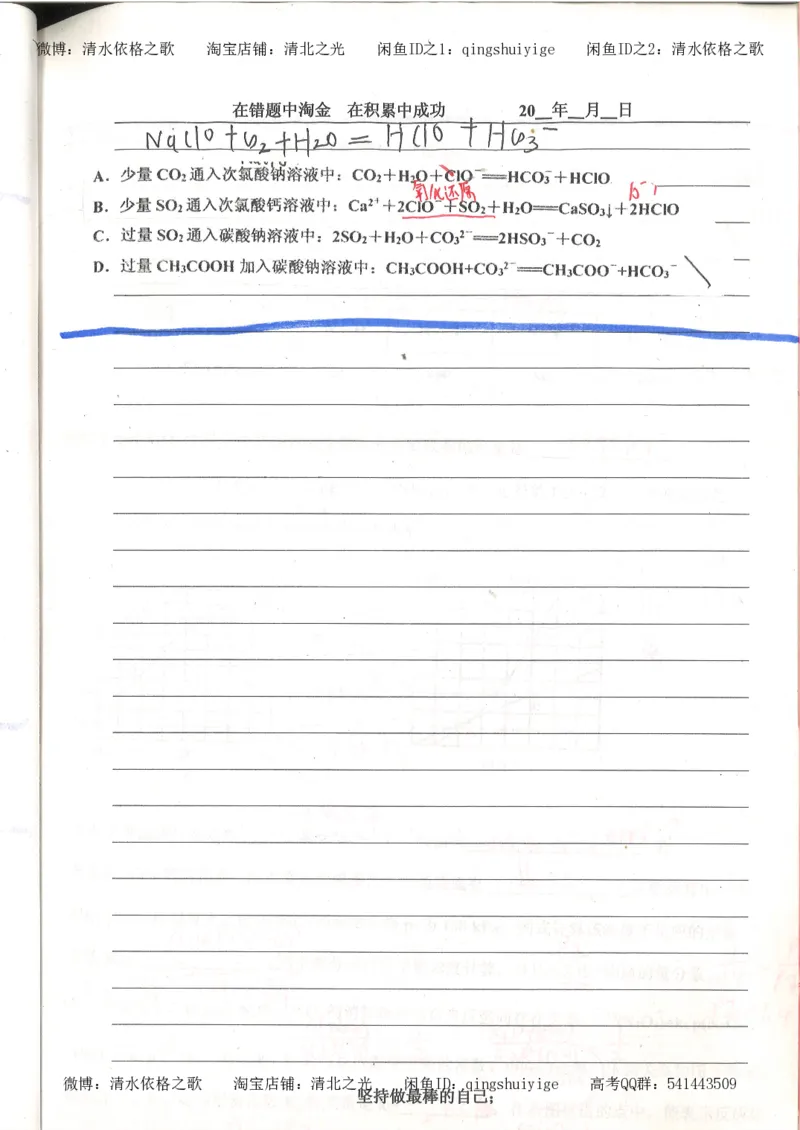 微博：清水依格之歌 淘宝店铺：清北之光 闲鱼ID之1：qingshuiyige 闲鱼ID之2：清水依格之歌
在错题中淘金 在积累中成功 20__年__月__日
NaClO+CO₂+H₂O=HClO+HCO₃⁻
A．少量CO₂通入次氯酸钠溶液中：CO₂+H₂O+ClO⁻══HCO₃⁻+HClO
氧化还原
B．少量SO₂通入次氯酸钙溶液中：Ca²⁺+2ClO⁻+SO₂+H₂O══CaSO₃↓+2HClO
C．过量SO₂通入碳酸钠溶液中：2SO₂+H₂O+CO₃²⁻══2HSO₃⁻+CO₂
D．过量CH₃COOH加入碳酸钠溶液中：CH₃COOH+CO₃²⁻══CH₃COO⁻+HCO₃⁻
微博：清水依格之歌 淘宝店铺：清北之光 闲鱼ID：qingshuiyige 高考QQ群：541443509
坚持做最棒的自己；